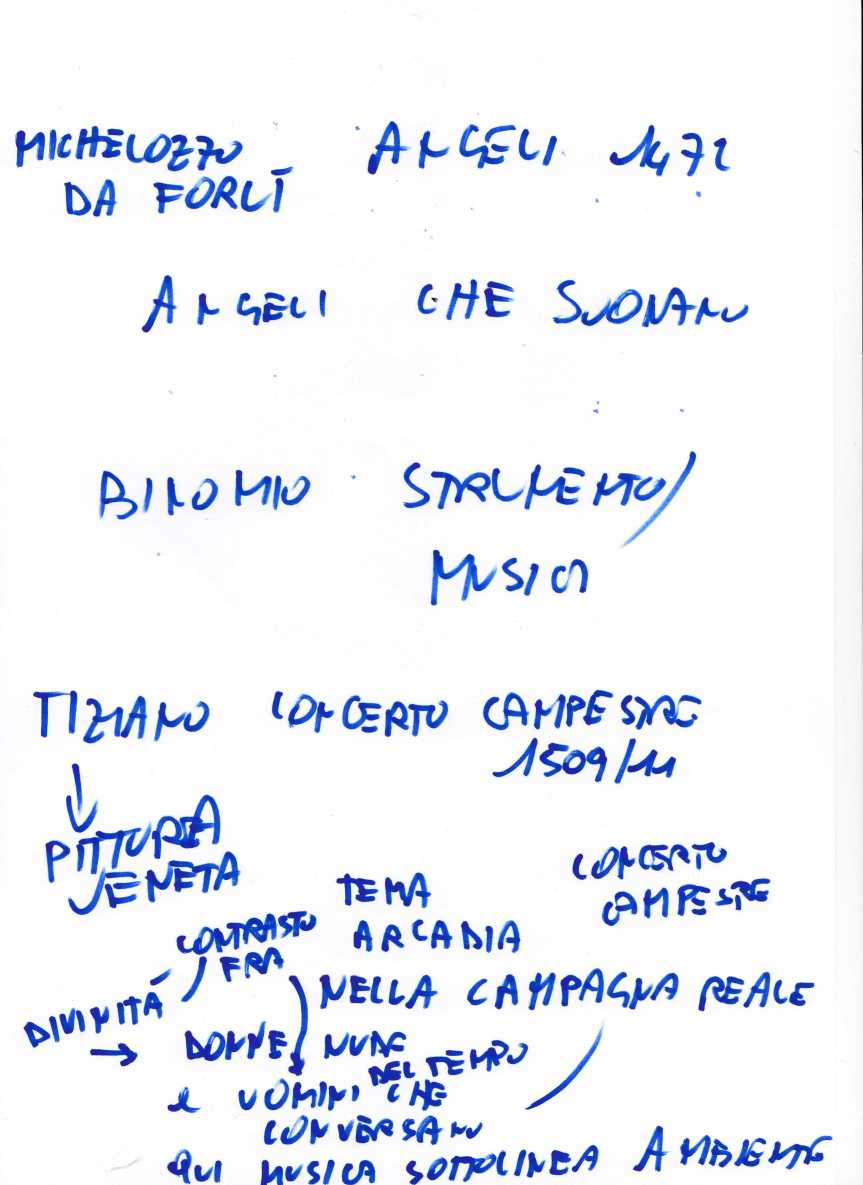 MICHELOZZO ANGELI 1472
DA FORLÌ
ANGELI CHE SUONANO
BINOMIO STRUMENTO/
MUSICA
TIZIANO CONCERTO CAMPESTRE
1509/11
PITTURA
VENETA
CONCERTO
CAMPESTRE
TEMA
ARCADIA
CONTRASTO
FRA
NELLA CAMPAGNA REALE
DIVINITÁ
→ DONNE NUDE
DEL TEMPO
e UOMINI CHE
CONVERSANO
QUI MUSICA SOTTOLINEA AMBIENTE